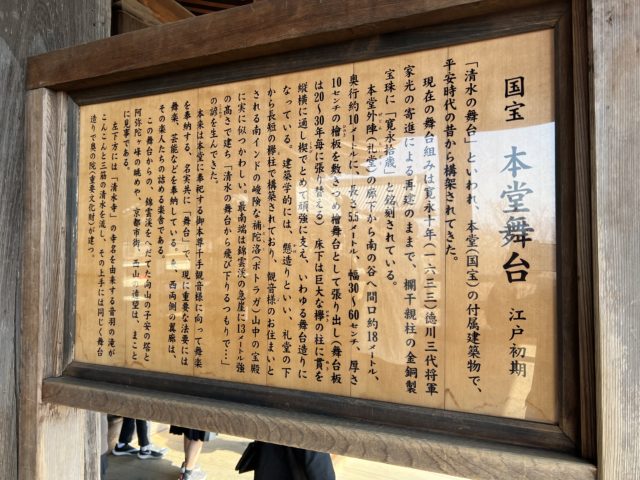 国宝 本堂舞台 江戸初期
「清水の舞台」といわれ、本堂(国宝)の付属建築物で、
平安時代の昔から構架されてきた。
現在の舞台組みは寛永十年(一六三三)徳川三代将軍
家光の寄進による再建のままで、欄干親柱の金銅製
宝珠に「寛永拾歳」と銘刻されている。
本堂外陣(礼堂)の廊下から南の谷へ間口約18メートル、
奥行約10メートルに、長さ5.5メートル、幅30〜60センチ、厚さ
10センチの檜板を敷きつめ檜舞台として張り出し(舞台板
は20〜30年毎に張り替える)床下は巨大な欅の柱に貫を
縦横に通し楔でとめて頑強に支え、いわゆる舞台造りに
なっている。建築学的には、懸造りといい、礼堂の下
から長短の欅柱で構築されており、観音様のお住まいと
される南インドの峻険な補陀洛(ポトラガ)山中の宝殿
に実に似つかわしい。最南端は錦雲渓の急崖に13メートル強
の高さで建ち「清水の舞台から飛び下りるつもりで…」
の諺を生んできた。
本来は本堂に奉祀する御本尊千手観音様に向って舞楽
を奉納する、名実共に「舞台」で、現に重要な法要には
舞楽、芸能などを奉納している。また、西両側の翼廊は、
その楽人たちの詰める楽舎である。
この舞台からの、錦雲渓をへだてた向山の子安の塔と
阿弥陀ヶ峰の眺めや、京都市街、西山の遠望は、まこと
に見事である。
左下方には「清水寺」の寺名を由来する音羽の滝が
こんこんと三筋の清水を流し、その上手には同じく舞台
造りで奥の院(重要文化財)が建つ。